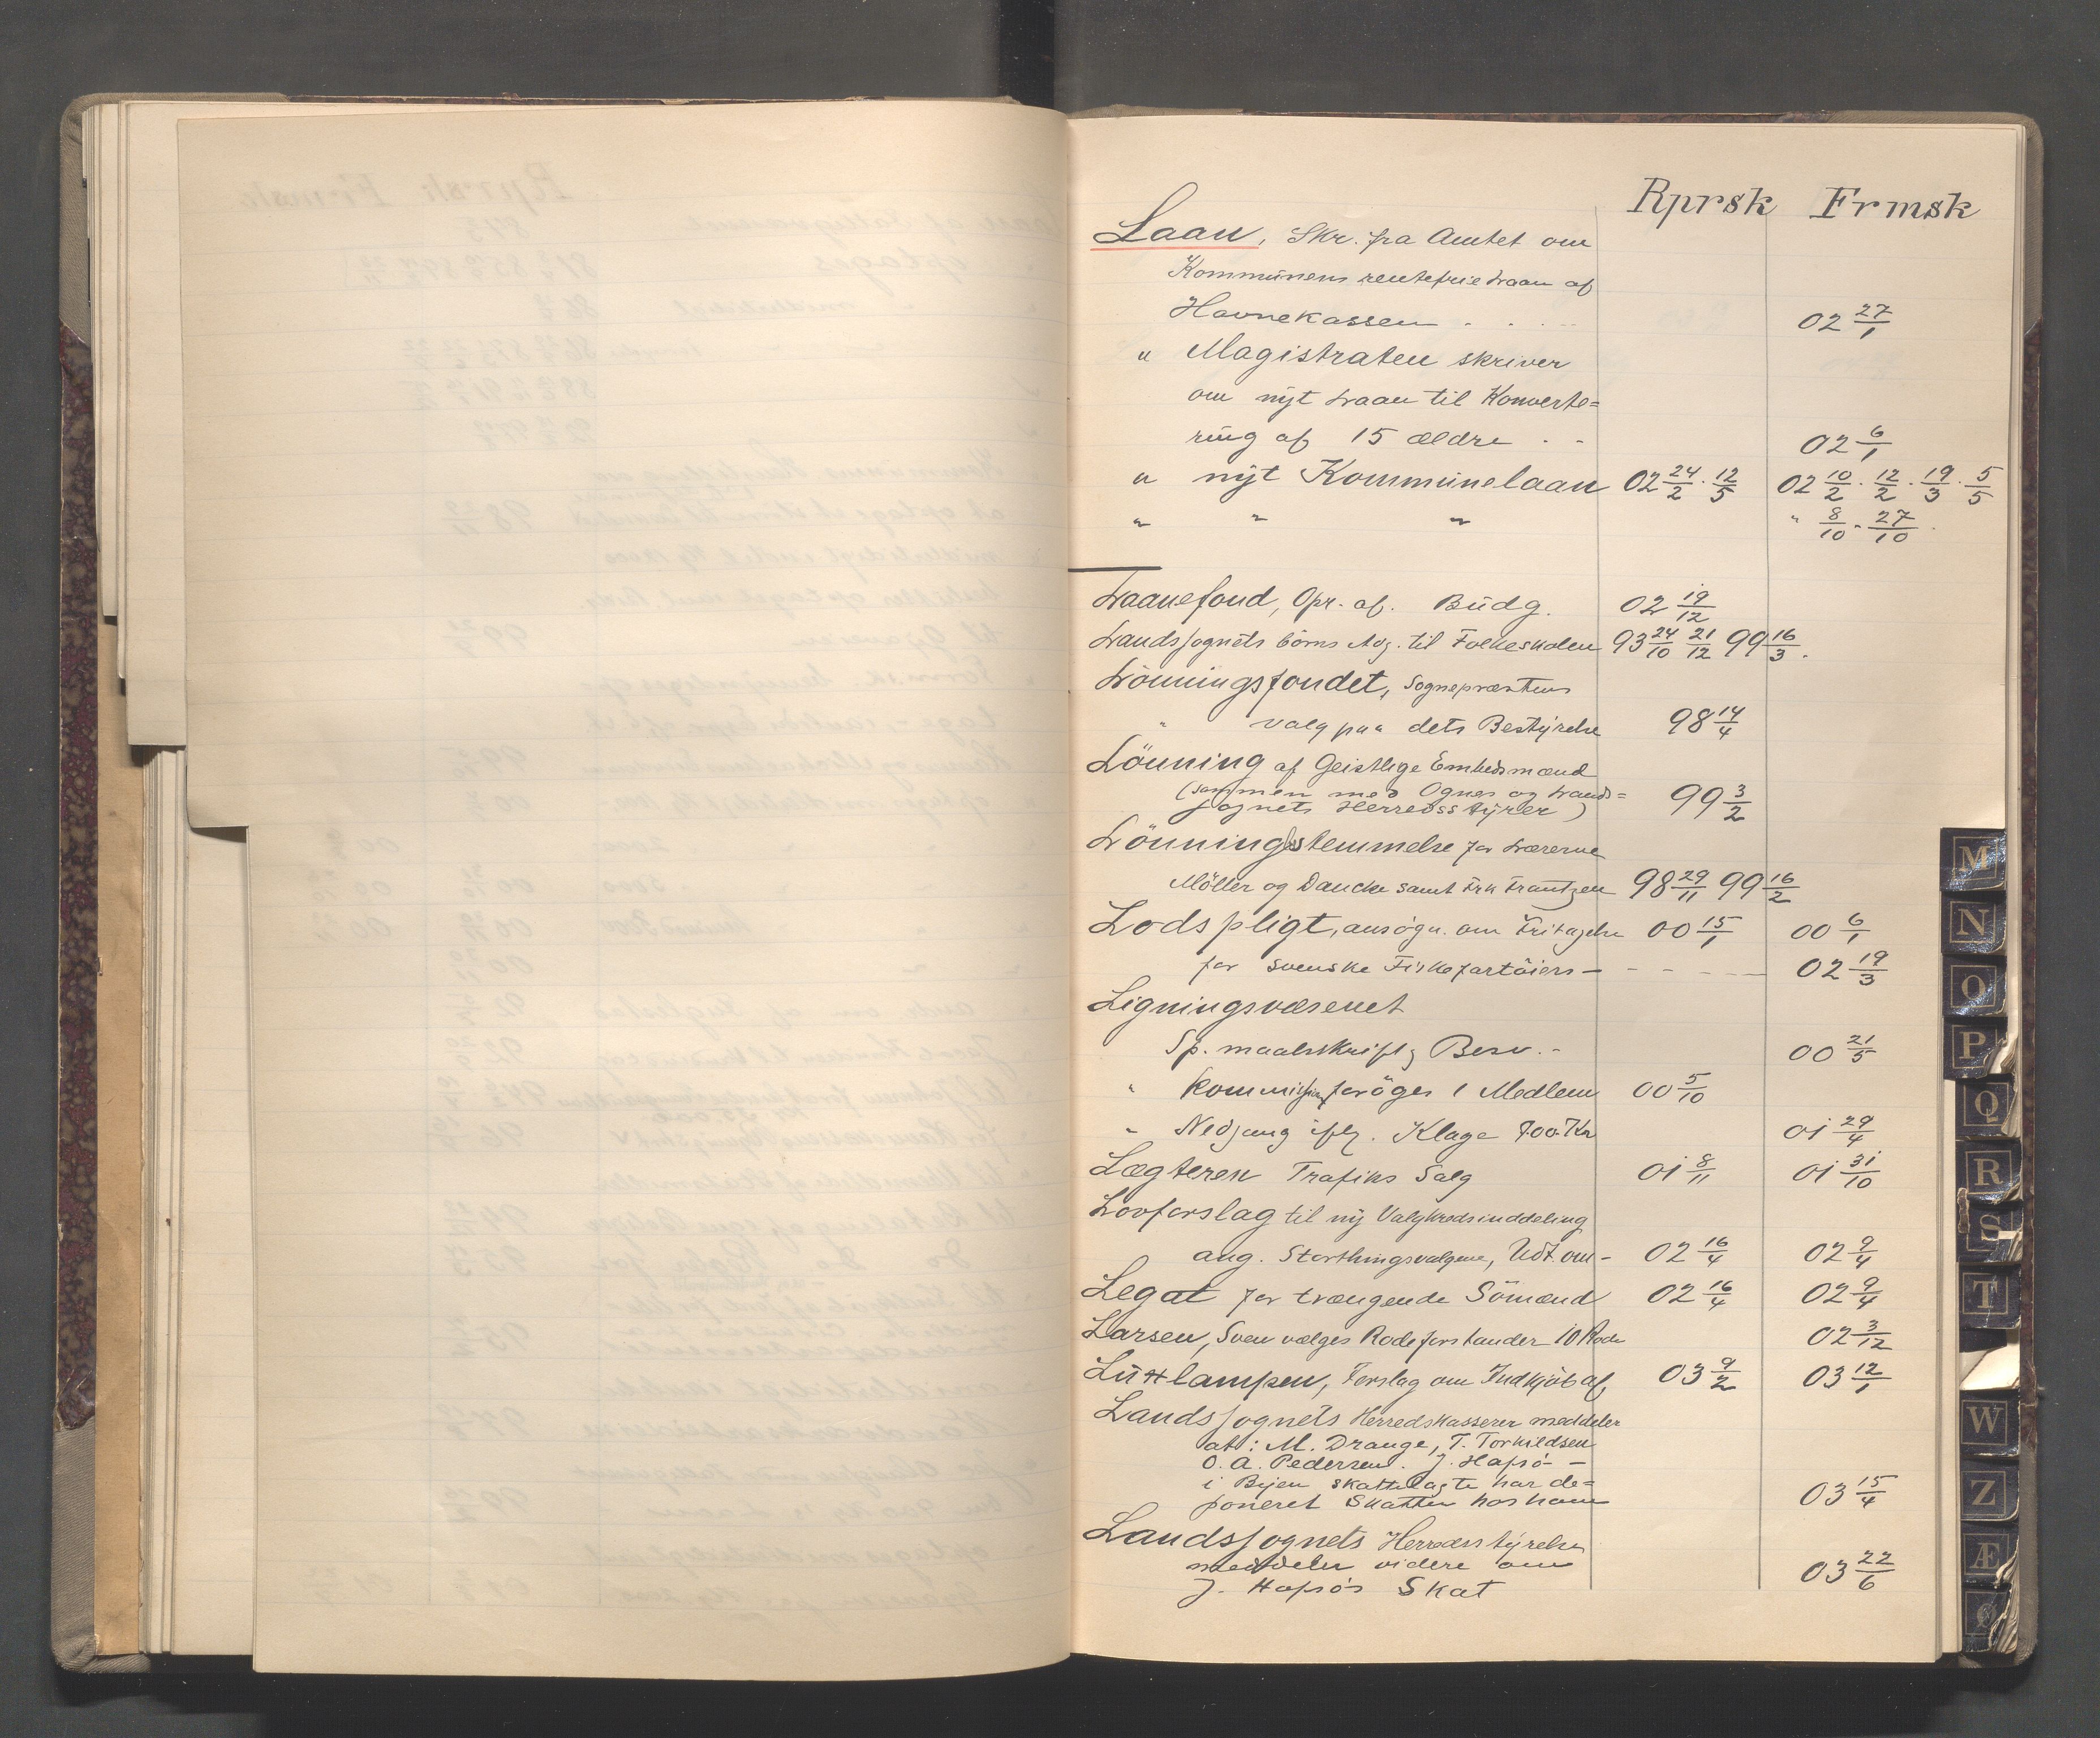 Rprsk Frmsk
Laan, Skr. fra Amtet om
Kommunens rentefrie Laan af
Havnekassen . . . . 02 27/1
" Magistraten skriver
om nyt Laan til Konverte=
ring af 15 ældre . - 02 6/1
" nyt Kommunelaan 02 24/2 . 12/5 02 10/2 . 12/2 . 19/3 . 5/5
" " " " 8/10 . 27/10
Laanefond, Opr. af. Budg. 02 19/12
Landssognets börns Adg. til Folkeskolen 93 24/10 21/12 99 16/3.
Lönningsfondet, Sogneprestens
" valg paa dets Bestyrelse 98 14/4
Lönning af Geistlige Embedsmænd
(sammen med Ognes og Lands=
sognets Herredsstyrer) 99 3/2
Lönningsstemmelse for Lærerne
Möller og Dancke samt Frk Frantzen 98 29/11 99 16/2
Lodspligt, ansögn. om Fritagelse 00 15/1 00 6/1
for svenske Fiskefartöiers - - - - - 02 19/3
Ligningsvæsenet
Sp. maalsskrift Besv. - 00 21/5
" Kommission foröges 1 Medlem 00 5/10
" Nedsang iflg. Klage 700 Kr 01 29/4
Lægteren Trafiks Salg 01 8/11 01 31/10
Lovforslag til ny Valgkredsinddeling
ang. Storthingsvalgene, Udt. om - 02 16/4 02 9/4
Legat for trængende Sömænd 02 16/4 02 9/4
Larsen, Sven vælges Rodeforstander 10 Rode 02 3/12
Luxlampen, Forslag om Indkjöb af 03 9/2 03 12/1
Landssognets Herredskasserer meddeler
at: M. Drange, T. Torkildsen
O. A. Pedersen. J. Hafsö -
i Byen skattelagte har de=
poneret Skatten hos ham 03 15/4
Landssognets Herredsstyrelse
meddeler videre om
J. Hafsö's Skat 03 22/6
M
N
O
P
Q
R
S
T
W
Z
Æ
Ø